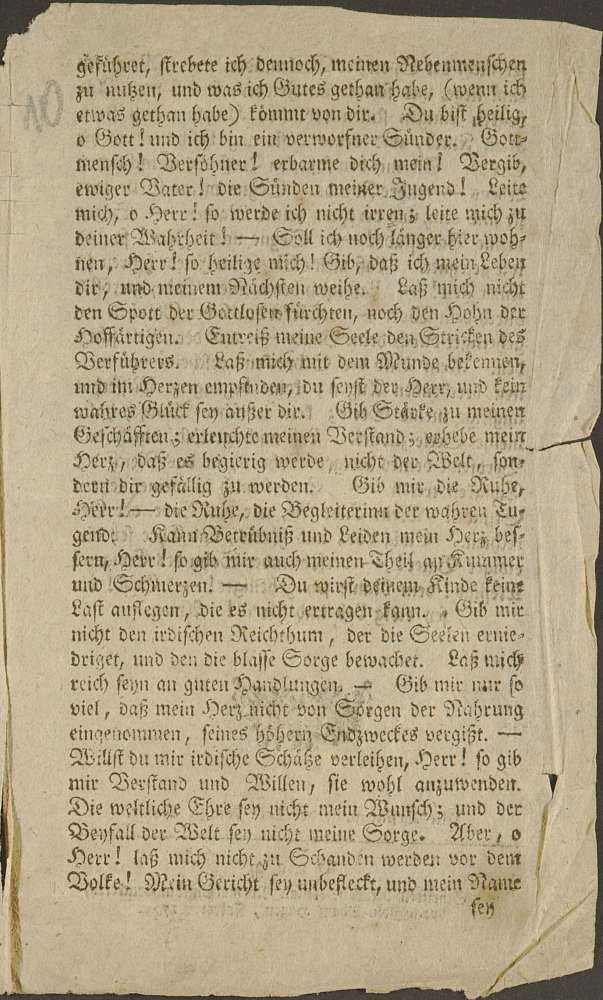 10
geführet, strebete ich dennoch, meinen Nebenmenschen
zu nutzen, und was ich Gutes gethan habe, (wenn ich
etwas gethan habe) kömmt von dir. Du bist heilig,
o Gott! und ich bin ein verworfner Sünder. Gott-
mensch! Versöhner! erbarme dich mein! Vergib,
ewiger Vater! die Sünden meiner Jugend! Leite
mich, o Herr! so werde ich nicht irren; leite mich zu
deiner Wahrheit! — Soll ich noch länger hier woh-
nen, Herr! so heilige mich! Gib, daß ich mein Leben
dir, und meinem Nächsten weihe. Laß mich nicht
den Spott der Gottlosen fürchten, noch den Hohn der
Hoffärtigen. Entreiß meine Seele den Stricken des
Verführers. Laß mich mit dem Munde bekennen,
und im Herzen empfinden, du seyst der Herr, und kein
wahres Glück sey außer dir. Gib Stärke zu meinen
Geschäfften; erleuchte meinen Verstand; erhebe mein
Herz, daß es begierig werde, nicht der Welt, son-
dern dir gefällig zu werden. Gib mir die Ruhe,
Herr! — die Ruhe, die Begleiterinn der wahren Tu-
gend: Kann Betrübniß und Leiden mein Herz bes-
sern, Herr! so gib mir auch meinen Theil an Kummer
und Schmerzen! — Du wirst deinem Kinde keine
Last auflegen, die es nicht ertragen kann. Gib mir
nicht den irdischen Reichthum, der die Seelen ernie-
driget, und den die blasse Sorge bewachet. Laß mich
reich seyn an guten Handlungen. — Gib mir nur so
viel, daß mein Herz nicht von Sorgen der Nahrung
eingenommen, seines höhern Endzweckes vergißt. —
Willst du mir irdische Schätze verleihen, Herr! so gib
mir Verstand und Willen, sie wohl anzuwenden.
Die weltliche Ehre sey nicht mein Wunsch; und der
Beyfall der Welt sey nicht meine Sorge. Aber, o
Herr! laß mich nicht zu Schanden werden vor dem
Volke! Mein Gericht sey unbefleckt, und mein Name
sey